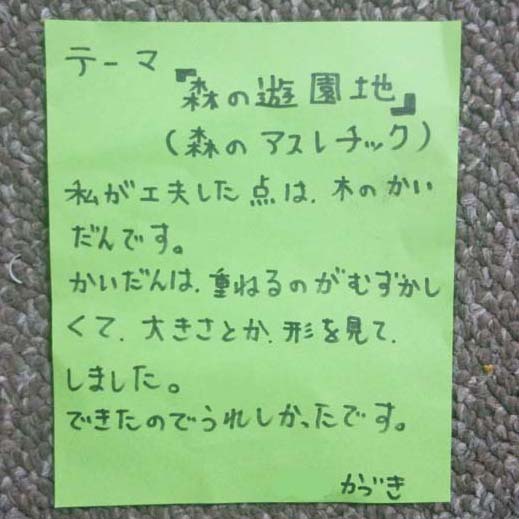 テーマ
『森の遊園地』
(森のアスレチック)
私が工夫した点は、木のかい
だんです。
かいだんは、重ねるのがむずかし
くて、大きさとか、形を見て、
しました。
できたのでうれしかったです。
かづき